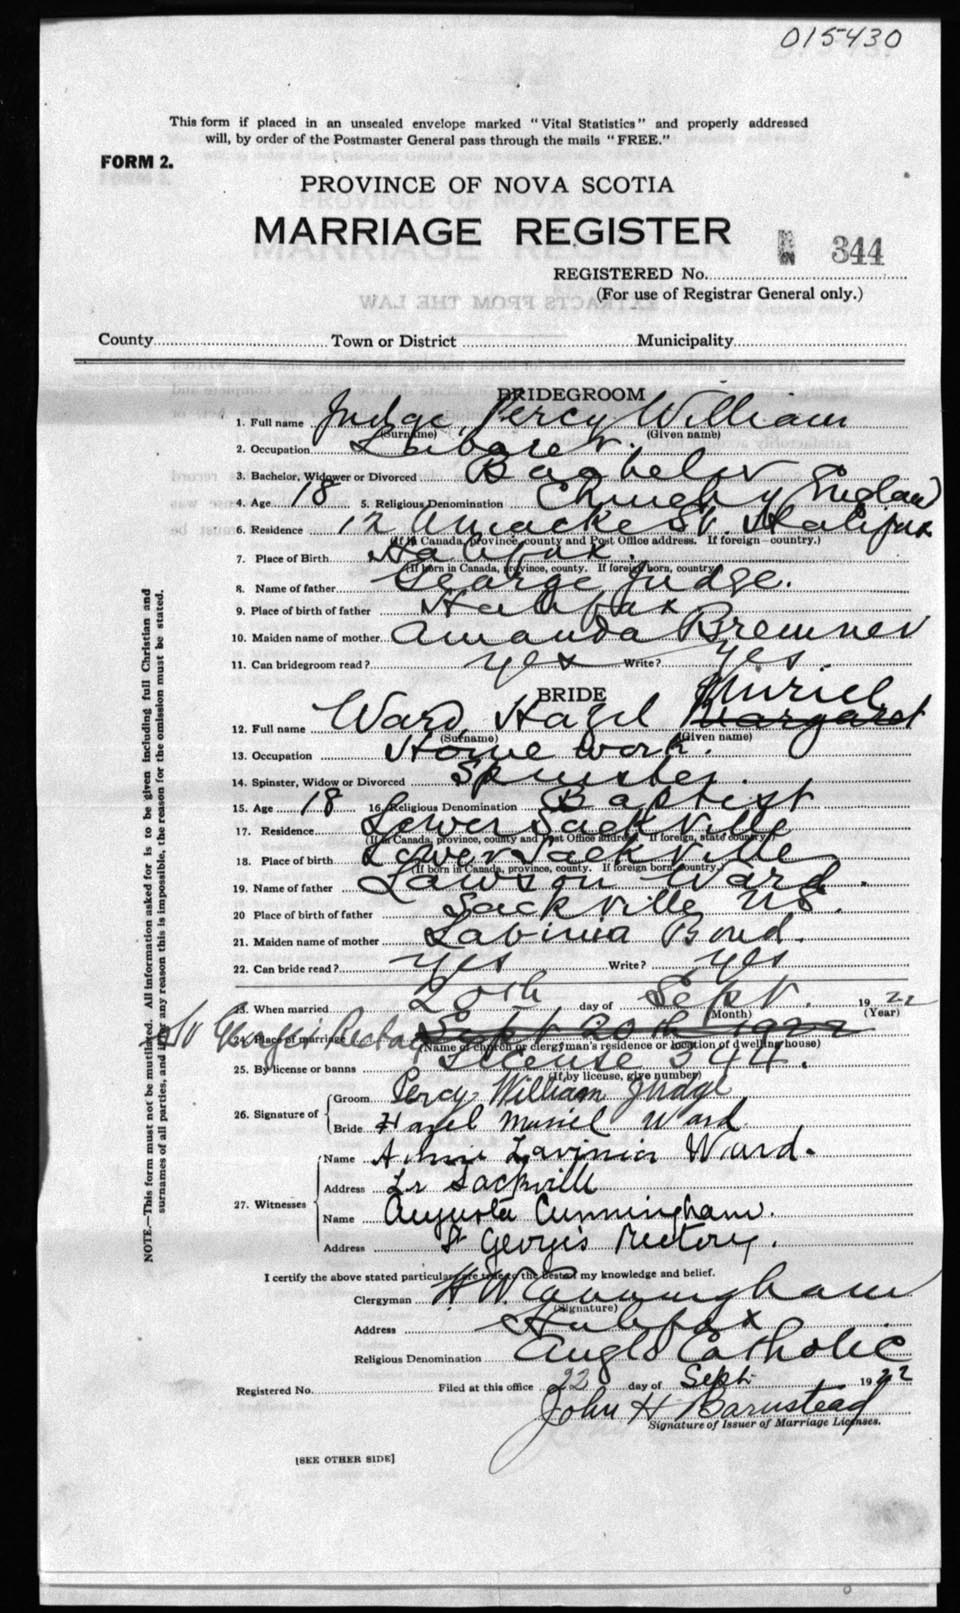 015430
This form if placed in an unsealed envelope marked "Vital Statistics" and properly addressed
will, by order of the Postmaster General pass through the mails "FREE."
FORM 2.
PROVINCE OF NOVA SCOTIA
MARRIAGE REGISTER
344
REGISTERED No.
(For use of Registrar General only.)
EXTRACTS FROM THE LAW
County Town or District Municipality
BRIDEGROOM
1. Full name Judge, Percy William
(Surname) (Given name)
2. Occupation Laborer.
3. Bachelor, Widower or Divorced Bachelor
4. Age 18 5. Religious Denomination Church of England
6. Residence 12 St. Halifax
(If in Canada, province, county and Post Office address. If foreign—country.)
7. Place of Birth Halifax.
(If born in Canada, province, county. If foreign born, country)
8. Name of father George Judge.
9. Place of birth of father Halifax
10. Maiden name of mother Amanda Bremner
11. Can bridegroom read? yes Write? yes.
BRIDE Muriel
12. Full name Ward, Hazel Margaret
(Surname) (Given name)
13. Occupation Home work.
14. Spinster, Widow or Divorced Spinster.
15. Age 18 16. Religious Denomination Baptist
17. Residence Lower Sackville
(If in Canada, province, county and Post Office address. If foreign, state country.)
18. Place of birth Lower Sackville
(If born in Canada, province, county. If foreign born, country.)
19. Name of father Lawson Ward.
20 Place of birth of father Sackville NS.
21. Maiden name of mother Labinia Bond.
22. Can bride read? yes Write? yes
23. When married 20th day of Sept. 1922
(Month) (Year)
24. Place of marriage St Georges Rectory Sept 20th 1922
(Name of church or clergyman's residence or location of dwelling house)
25. By license or banns License 344.
(If by license, give number)
26. Signature of Groom Percy William Judge
Bride Hazel Muriel Ward
27. Witnesses Name Annie Lavinia Ward.
Address Lr Sackville
Name Augusta Cunningham.
Address St Georges Rectory.
I certify the above stated particulars are true to the best of my knowledge and belief.
Clergyman H W Cunningham
(Signature)
Address Halifax
Religious Denomination Anglo Catholic
Registered No. Filed at this office 22 day of Sept. 1922
John H Barnstead
Signature of Issuer of Marriage Licenses.
[SEE OTHER SIDE]
NOTE.—This form must not be mutilated. All information asked for is to be given including full Christian and
surnames of all parties, and if for any reason this is impossible, the reason for the omission must be stated.